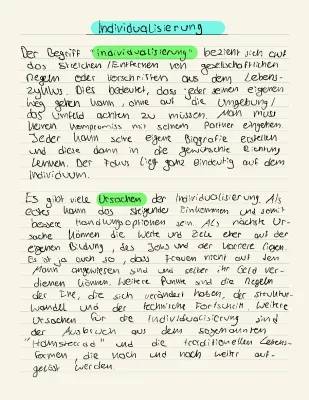 Individualisierung
Der Begriff "individualisierung" bezieht sich auf
das Streichen / Entfernen von gesellschaftlichen
Regeln oder Vorschriften aus dem Lebens-
zyklus. Dies bedeutet, dass jeder seinen eigenen
Weg gehen kann, ohne auf die Umgebung/
das Umfeld achten zu müssen. Man muss
keinen Kompromiss mit seinem Partner eingehen.
Jeder kann seine eigene Biografie erstellen
und diese dann in die gewünschte Richtung
lenken. Der Fokus liegt ganz eindeutig auf dem
Individuum.
Es gibt viele Ursachen der Individualisierung. Als
erstes kann das steigende Einkommen und somit
bessere Handlungsoptionen sein. Als nächste Ur-
sache können die Werte und Ziele eher auf der
eigenen Bildung, des Jobs und der Karriere liegen.
Es ist ja auch so, dass Frauen nicht auf den
Mann angewiesen sind und selber ihr Geld ver-
dienen können. Weitere Punkte sind die Regeln
der Ehe, die sich verändert haben, der Struktur-
wandel und der technische Fortschritt. Weitere
Ursachen für die Individualisierung sind
der Ausbruch aus dem sogenannten
"Hamsterrad" und die traditionellen Lebens-
formen, die nach und nach weiter auf-
gelöst werden